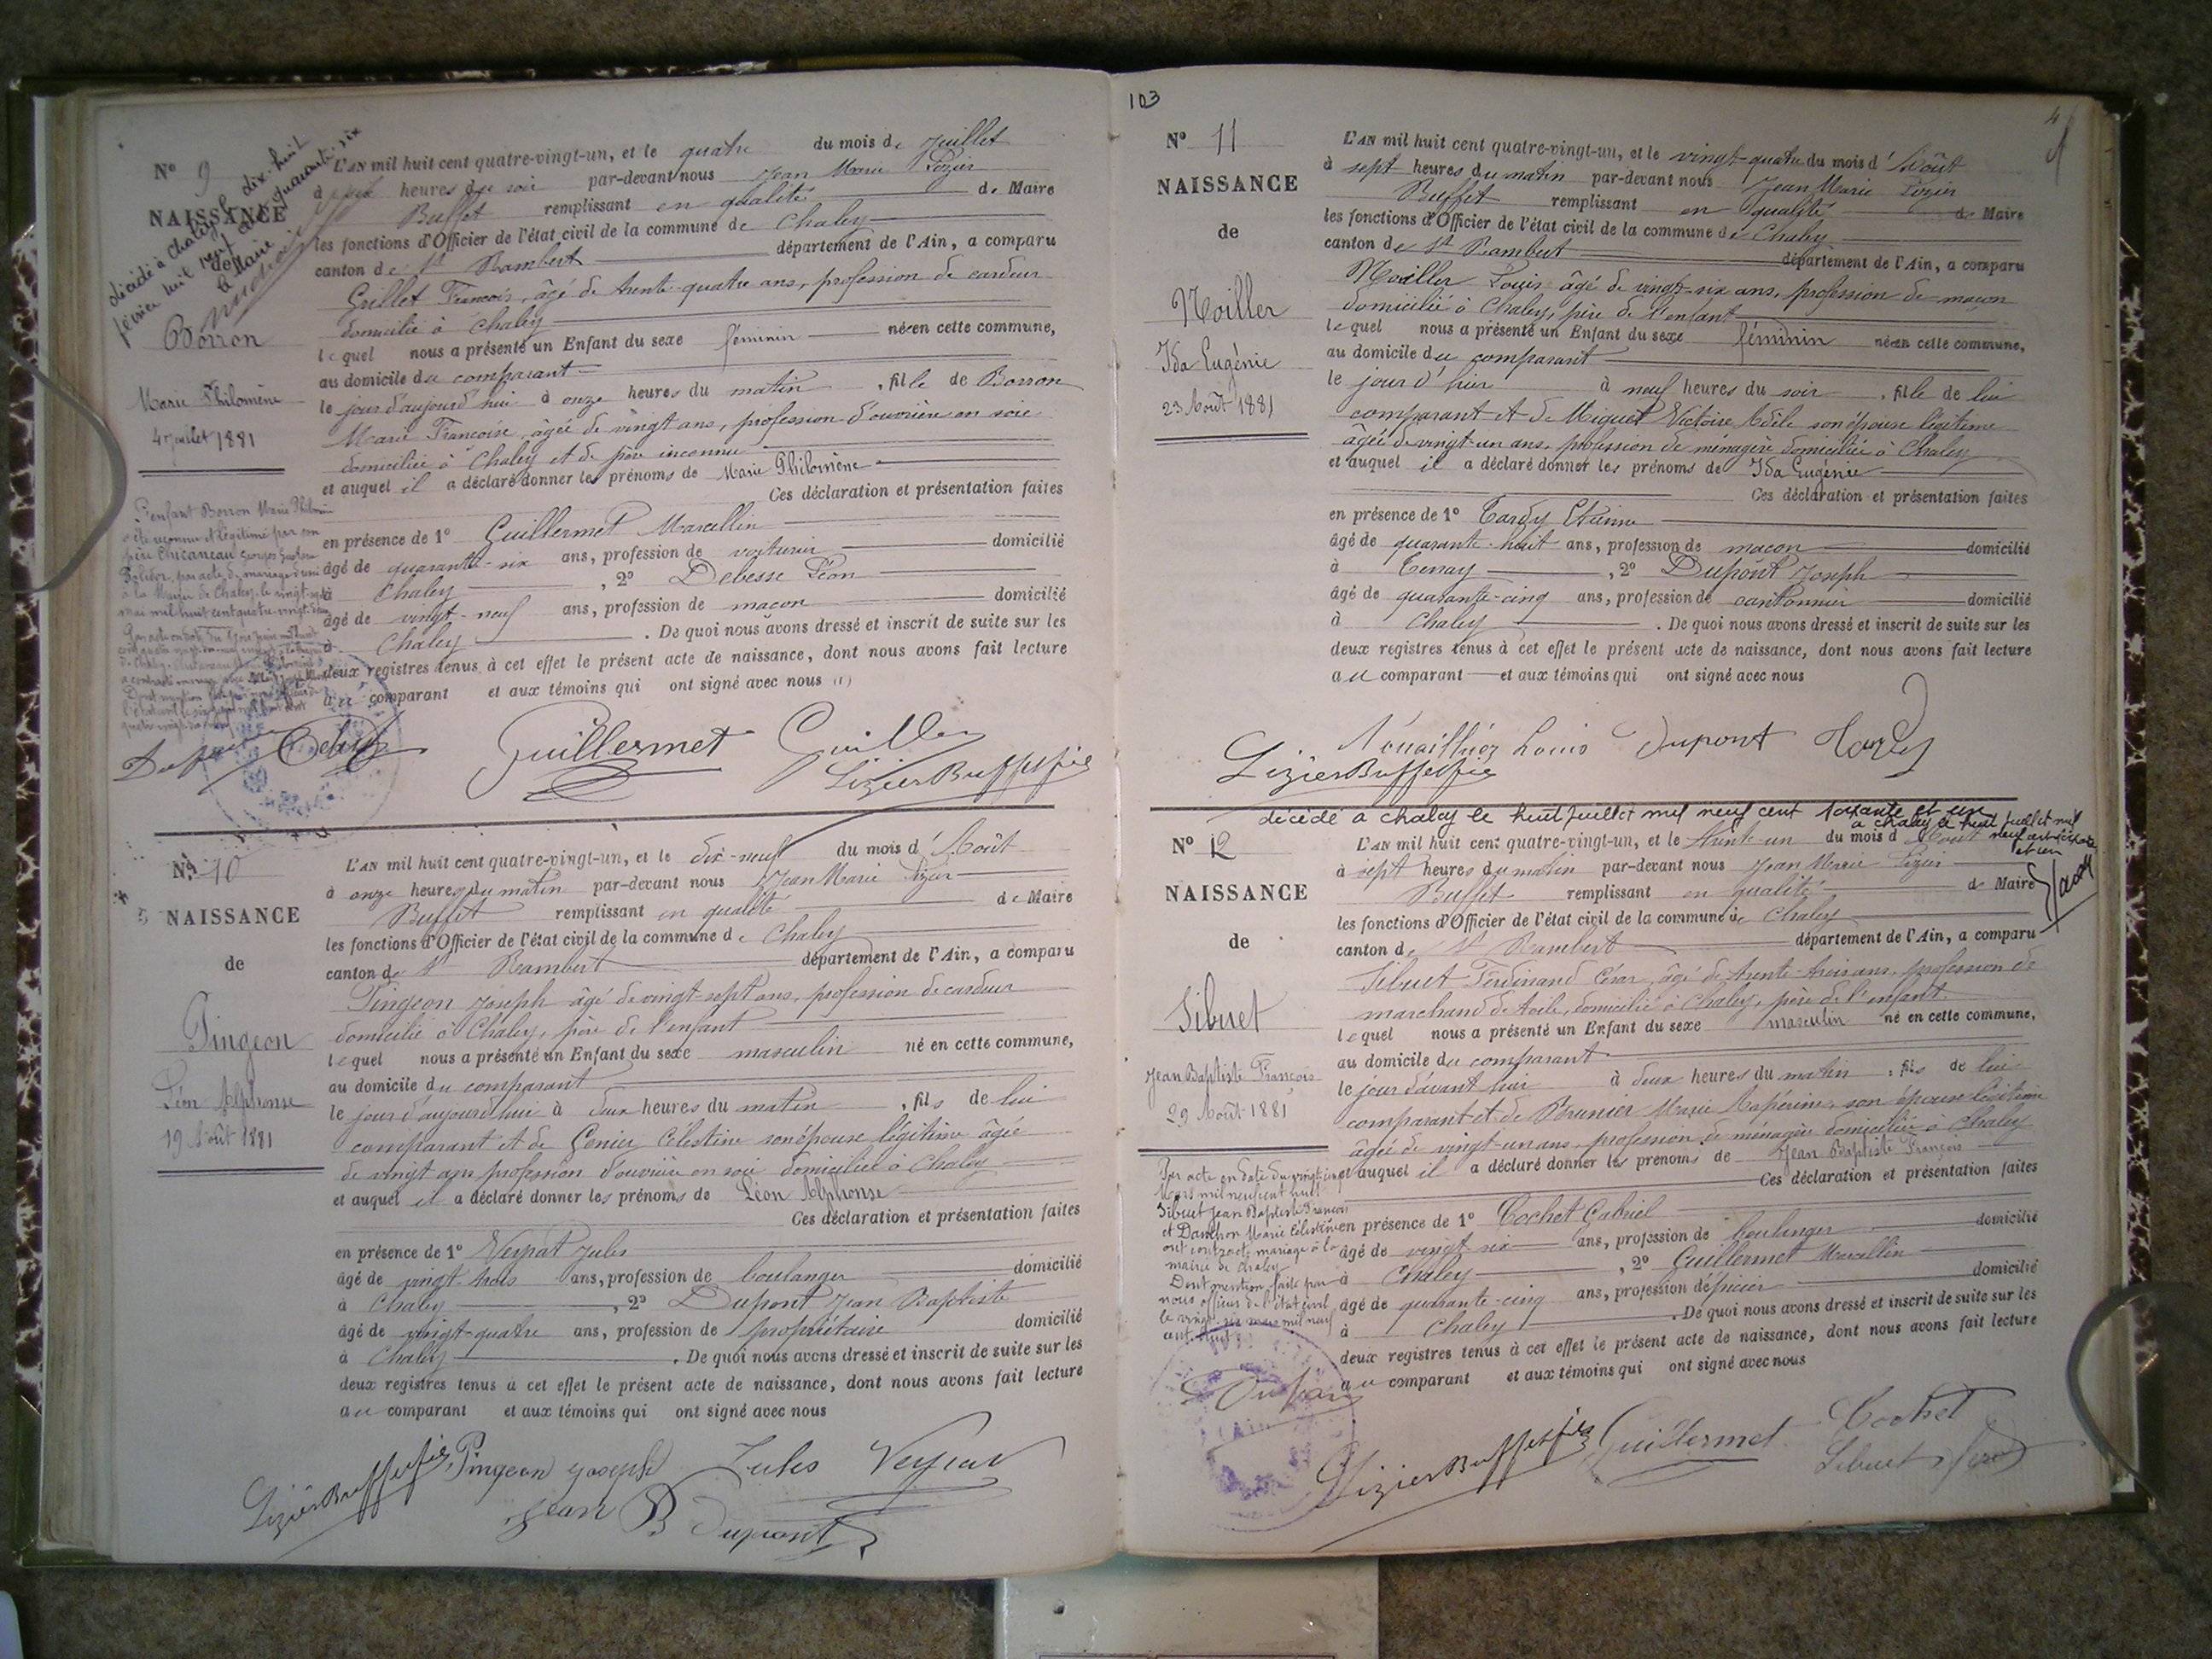 N° 9
NAISSANCE
de
Borron
Marie Philomène
4 juillet 1881
décédé à Chaley le dix-huit
février mil neuf cent quarante-six
le Maire
L'AN mil huit cent quatre-vingt-un, et le quatre du mois de Juillet
à heures du soir par-devant nous Jean Marie Lizier
Buffet remplissant en qualité de Maire
les fonctions d'Officier de l'état civil de la commune de Chaley
canton de St Rambert département de l'Ain, a comparu
Grillet François, âgé de trente-quatre ans, profession de cardeur
domicilié à Chaley
lequel nous a présenté un Enfant du sexe féminin née en cette commune,
au domicile du comparant
le jour d'aujourd'hui à onze heures du matin, fille de Borron
Marie Françoise, âgée de vingt ans, profession d'ouvrière en soie
domiciliée à Chaley et de père inconnu
et auquel il a déclaré donner les prénoms de Marie Philomène
Ces déclaration et présentation faites
en présence de 1° Guillermet Marcellin
âgé de quarante-six ans, profession de voiturier domicilié
à Chaley, 2° Debesse Léon
âgé de vingt-neuf ans, profession de maçon domicilié
à Chaley. De quoi nous avons dressé et inscrit de suite sur les
deux registres tenus à cet effet le présent acte de naissance, dont nous avons fait lecture
au comparant et aux témoins qui ont signé avec nous (1)
L'enfant Borron Marie Philomène
a été reconnu et légitimé par son
père Chicaneau Georges
par acte de mariage
à la Mairie de Chaley le vingt-sept
mai mil huit cent quatre-vingt
Guillermet
LizierBuffet fils
N° 10
NAISSANCE
de
Pingeon
Léon Alphonse
19 Août 1881
L'AN mil huit cent quatre-vingt-un, et le dix-neuf du mois d'Août
à onze heures du matin par-devant nous Jean Marie Lizier
Buffet remplissant en qualité de Maire
les fonctions d'Officier de l'état civil de la commune de Chaley
canton de St Rambert département de l'Ain, a comparu
Pingeon Joseph âgé de vingt-sept ans, profession de cardeur
domicilié à Chaley, père de l'enfant
lequel nous a présenté un Enfant du sexe masculin né en cette commune,
au domicile du comparant
le jour d'aujourd'hui à deux heures du matin, fils de lui
comparant et de Genier Célestine son épouse légitime âgée
de vingt ans profession d'ouvrière en soie domiciliée à Chaley
et auquel il a déclaré donner les prénoms de Léon Alphonse
Ces déclaration et présentation faites
en présence de 1° Veyrat Jules
âgé de vingt-trois ans, profession de boulanger domicilié
à Chaley, 2° Dupont Jean Baptiste
âgé de vingt-quatre ans, profession de propriétaire domicilié
à Chaley. De quoi nous avons dressé et inscrit de suite sur les
deux registres tenus à cet effet le présent acte de naissance, dont nous avons fait lecture
au comparant et aux témoins qui ont signé avec nous
LizierBuffet fils Pingeon Joseph Jules Veyrat
Jean B Dupont
103
N° 11
NAISSANCE
de
Noiller
Ida Eugénie
23 Août 1881
L'AN mil huit cent quatre-vingt-un, et le vingt-quatre du mois d'Août
à sept heures du matin par-devant nous Jean Marie Lizier
Buffet remplissant en qualité de Maire
les fonctions d'Officier de l'état civil de la commune de Chaley
canton de St Rambert département de l'Ain, a comparu
Noiller Louis âgé de vingt-six ans, profession de maçon
domicilié à Chaley, père de l'enfant
lequel nous a présenté un Enfant du sexe féminin née en cette commune,
au domicile du comparant
le jour d'hier à neuf heures du soir, fille de lui
comparant et de Miguet Victoire Adèle son épouse légitime
âgée de vingt-un ans, profession de ménagère domiciliée à Chaley
et auquel il a déclaré donner les prénoms de Ida Eugénie
Ces déclaration et présentation faites
en présence de 1° Tardy Etienne
âgé de quarante-huit ans, profession de maçon domicilié
à Tenay, 2° Dupont Joseph
âgé de quarante-cinq ans, profession de cantonnier domicilié
à Chaley. De quoi nous avons dressé et inscrit de suite sur les
deux registres tenus à cet effet le présent acte de naissance, dont nous avons fait lecture
au comparant et aux témoins qui ont signé avec nous
Louis Dupont Tardy
LizierBuffet fils
décédé à chaley le huit juillet mil neuf cent soixante et un
à chaley le huit juillet mil
neuf cent soixante
et un
N° 12
NAISSANCE
de
Sibuet
Jean Baptiste François
29 Août 1881
L'AN mil huit cent quatre-vingt-un, et le trente-un du mois d'Août
à sept heures du matin par-devant nous Jean Marie Lizier
Buffet remplissant en qualité de Maire
les fonctions d'Officier de l'état civil de la commune de Chaley
canton de St Rambert département de l'Ain, a comparu
Sibuet Ferdinand César, âgé de trente-trois ans, profession de
marchand de toile, domicilié à Chaley, père de l'enfant
lequel nous a présenté un Enfant du sexe masculin né en cette commune,
au domicile du comparant
le jour d'avant hier à deux heures du matin, fils de lui
comparant et de Prunier Marie son épouse légitime
âgée de vingt-un ans, profession de ménagère domiciliée à Chaley
et auquel il a déclaré donner les prénoms de Jean Baptiste François
Ces déclaration et présentation faites
en présence de 1° Cochet Gabriel
âgé de vingt-six ans, profession de boulanger domicilié
à Chaley, 2° Guillermet Marcellin
âgé de quarante-cinq ans, profession d'épicier domicilié
à Chaley. De quoi nous avons dressé et inscrit de suite sur les
deux registres tenus à cet effet le présent acte de naissance, dont nous avons fait lecture
au comparant et aux témoins qui ont signé avec nous
Par acte en date du vingt-cinq
Mars mil neuf cent huit
Sibuet Jean Baptiste François
et Marie Célestine
ont contracté mariage à la
mairie de Chaley
Dont mention faite par
nous officier de l'état civil
le vingt-six mars mil neuf
cent huit
LizierBuffet fils Guillermet Cochet
Sibuet